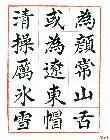 為顏常山舌
或為遼東帽
清操厲冰雪